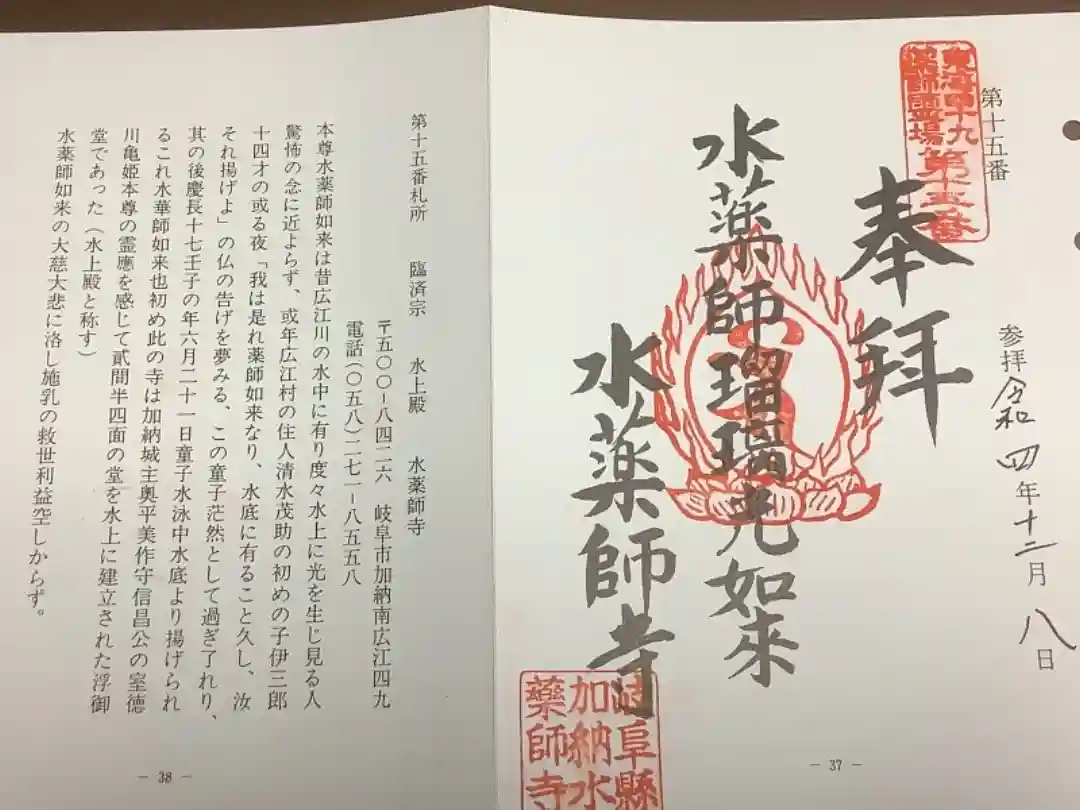 東海四十九
薬師霊場第十五番
第十五番
参拝 令和四年十二月八日
奉拝
水薬師瑠璃光如来
水薬師寺
岐阜縣
加納水
薬師寺
― 37 ―
第十五番札所 臨済宗 水上殿 水薬師寺
〒五〇〇-八四二六 岐阜市加納南広江四九
電話(〇五八)二七一-八五五八
本尊水薬師如来は昔広江川の水中に有り度々水上に光を生じ見る人
驚怖の念に近よらず、或年広江村の住人清水茂助の初めの子伊三郎
十四才の或る夜「我は是れ薬師如来なり、水底に有ること久し、汝
それ揚げよ」の仏の告げを夢みる、この童子茫然として過ぎ了れり、
其の後慶長十七壬子の年六月二十一日童子水泳中水底より揚げられ
るこれ水華師如来也初め此の寺は加納城主奥平美作守信昌公の室徳
川亀姫本尊の霊應を感じて貳間半四面の堂を水上に建立された浮御
堂であった(水上殿と称す)
水薬師如来の大慈大悲に洛し施乳の救世利益空しからず。
― 38 ―